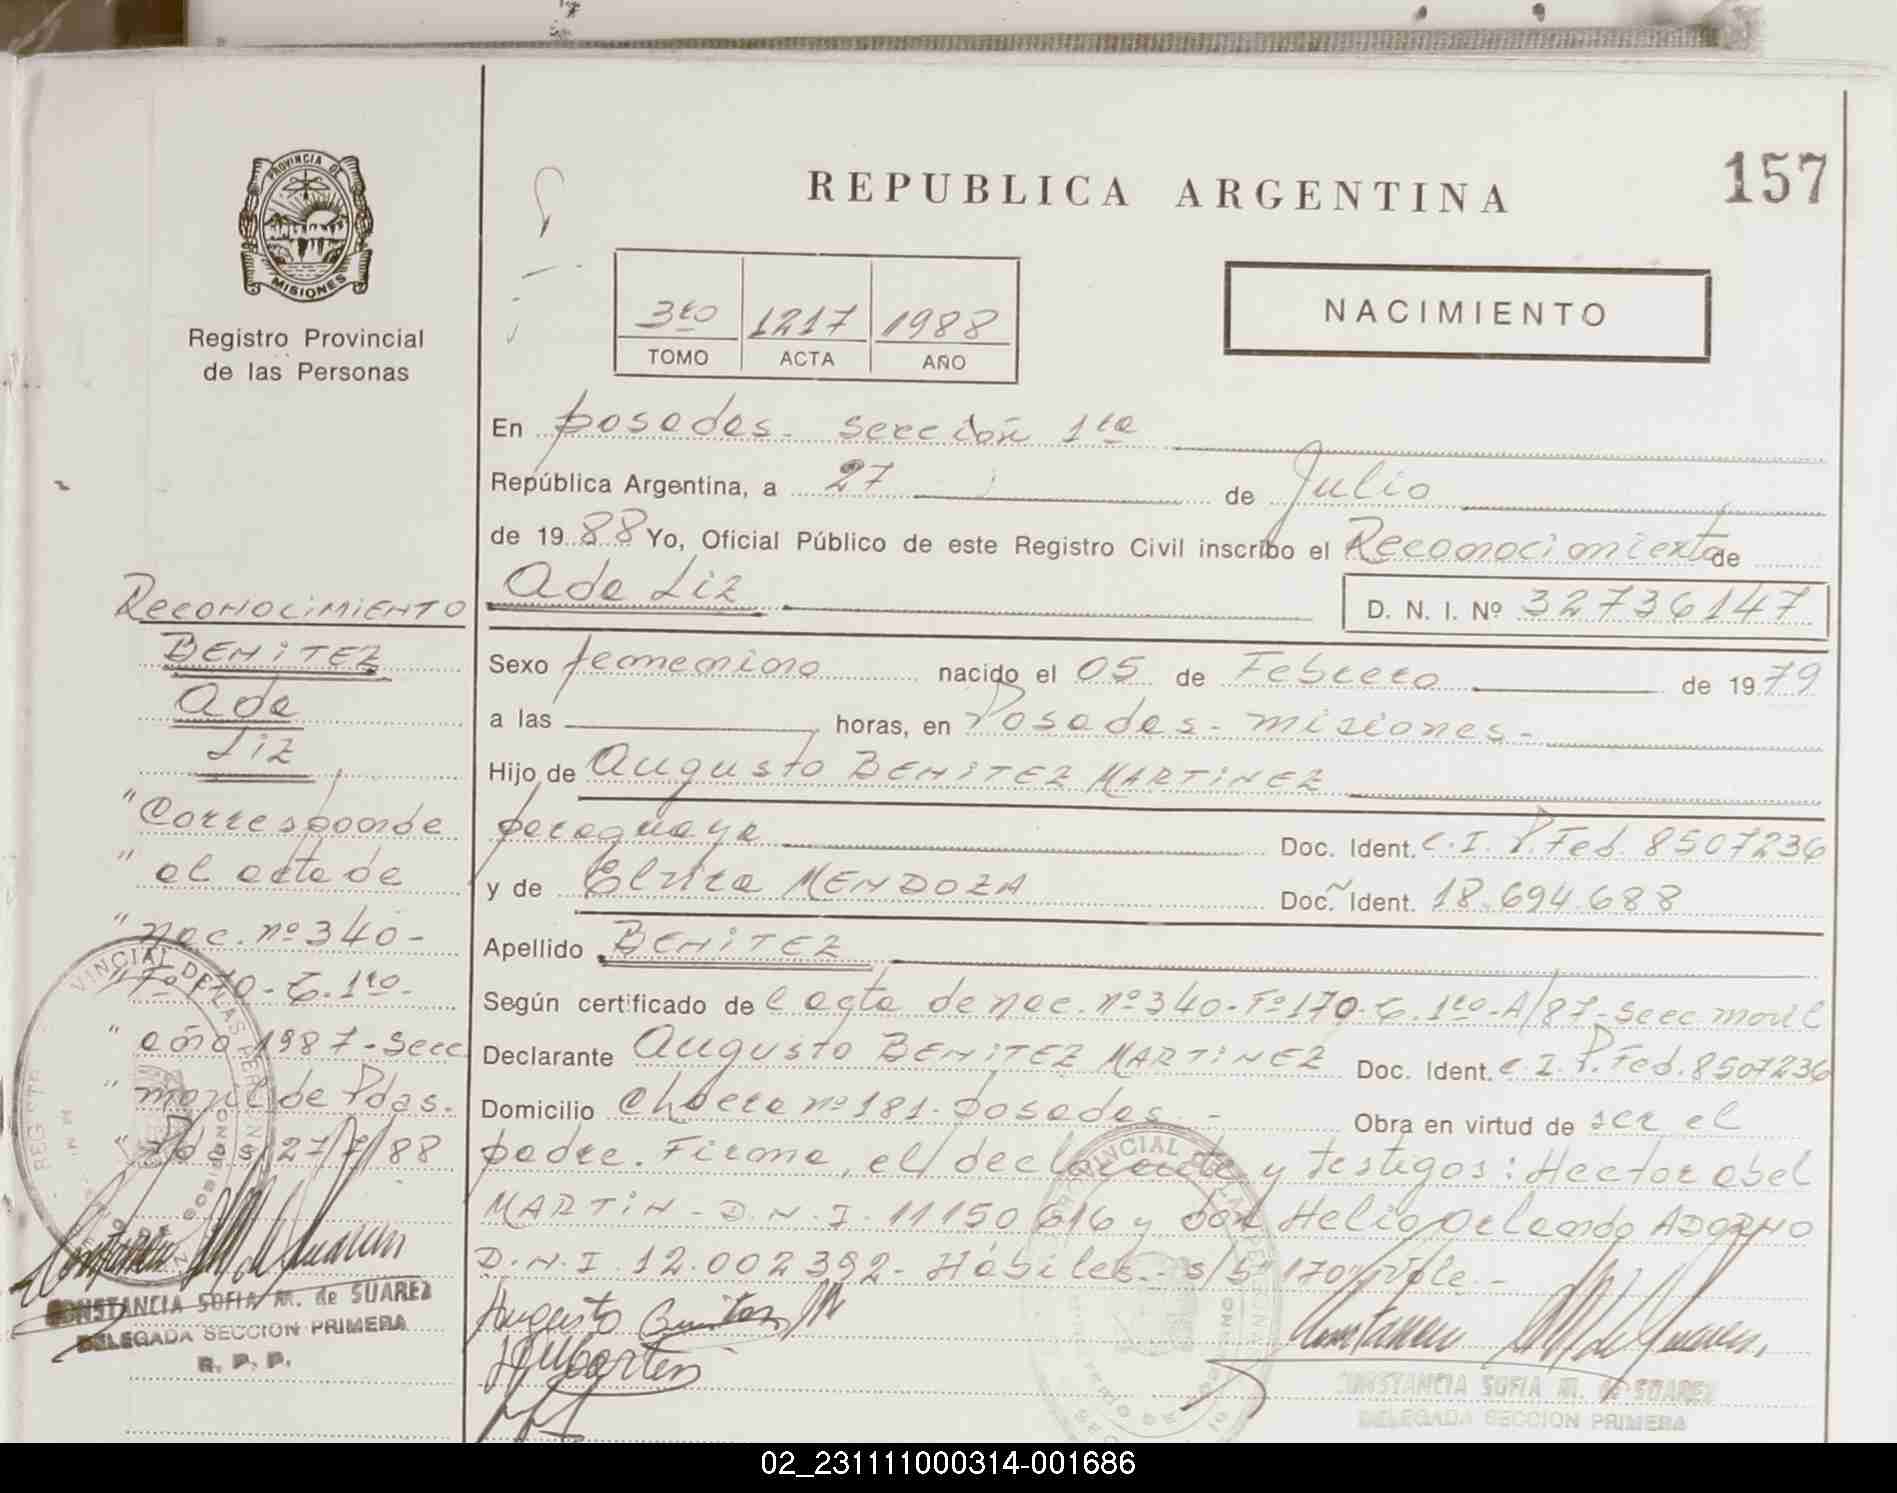 REPUBLICA ARGENTINA
157
PROVINCIA DE
MISIONES
Registro Provincial
de las Personas
3ro 1217 1988
TOMO ACTA AÑO
NACIMIENTO
En Posadas - sección 1ra
República Argentina, a 27 de Julio
de 1988 Yo, Oficial Público de este Registro Civil inscribo el Reconocimiento de
Ada Liz D. N. I. Nº 32736147
Sexo femenino nacido el 05 de Febrero de 1979
a las horas, en Posadas - misiones -
Hijo de Augusto BENITEZ MARTINEZ
paraguaya Doc. Ident. C. I. P. Fed. 8507236
y de Elvira MENDOZA Doc. Ident. 18.694.688
Apellido BENITEZ
Según certificado de l acta de nac. nº 340 - Fº 170 - T. 1ro - A/87 - Secc movil
Declarante Augusto BENITEZ MARTINEZ Doc. Ident. C. I. P. Fed. 8507236
Domicilio Chacra nº 181 - posadas - Obra en virtud de ser el
padre. Firma, el declarante y testigos: Hector abel
MARTIN - D. N. I. 11150616 y don Helio Orlando ADORNO
D. N. I. 12.002.392 - Hábiles - s/b 170 Vale -
Augusto Benitez M
HMartin
RECONOCIMIENTO
BENITEZ
Ada
Liz
"Corresponde
" al acta de
" nac. nº 340 -
" Fº 170 - T. 1ro -
" año 1987 - Secc
" movil de Pdas.
" Pdas 27/7/88
Constancia M de Suarez
CONSTANCIA SOFIA M. de SUAREZ
DELEGADA SECCION PRIMERA
R. P. P.
Constancia M de Suarez
CONSTANCIA SOFIA M. de SUAREZ
DELEGADA SECCION PRIMERA
02_231111000314-001686